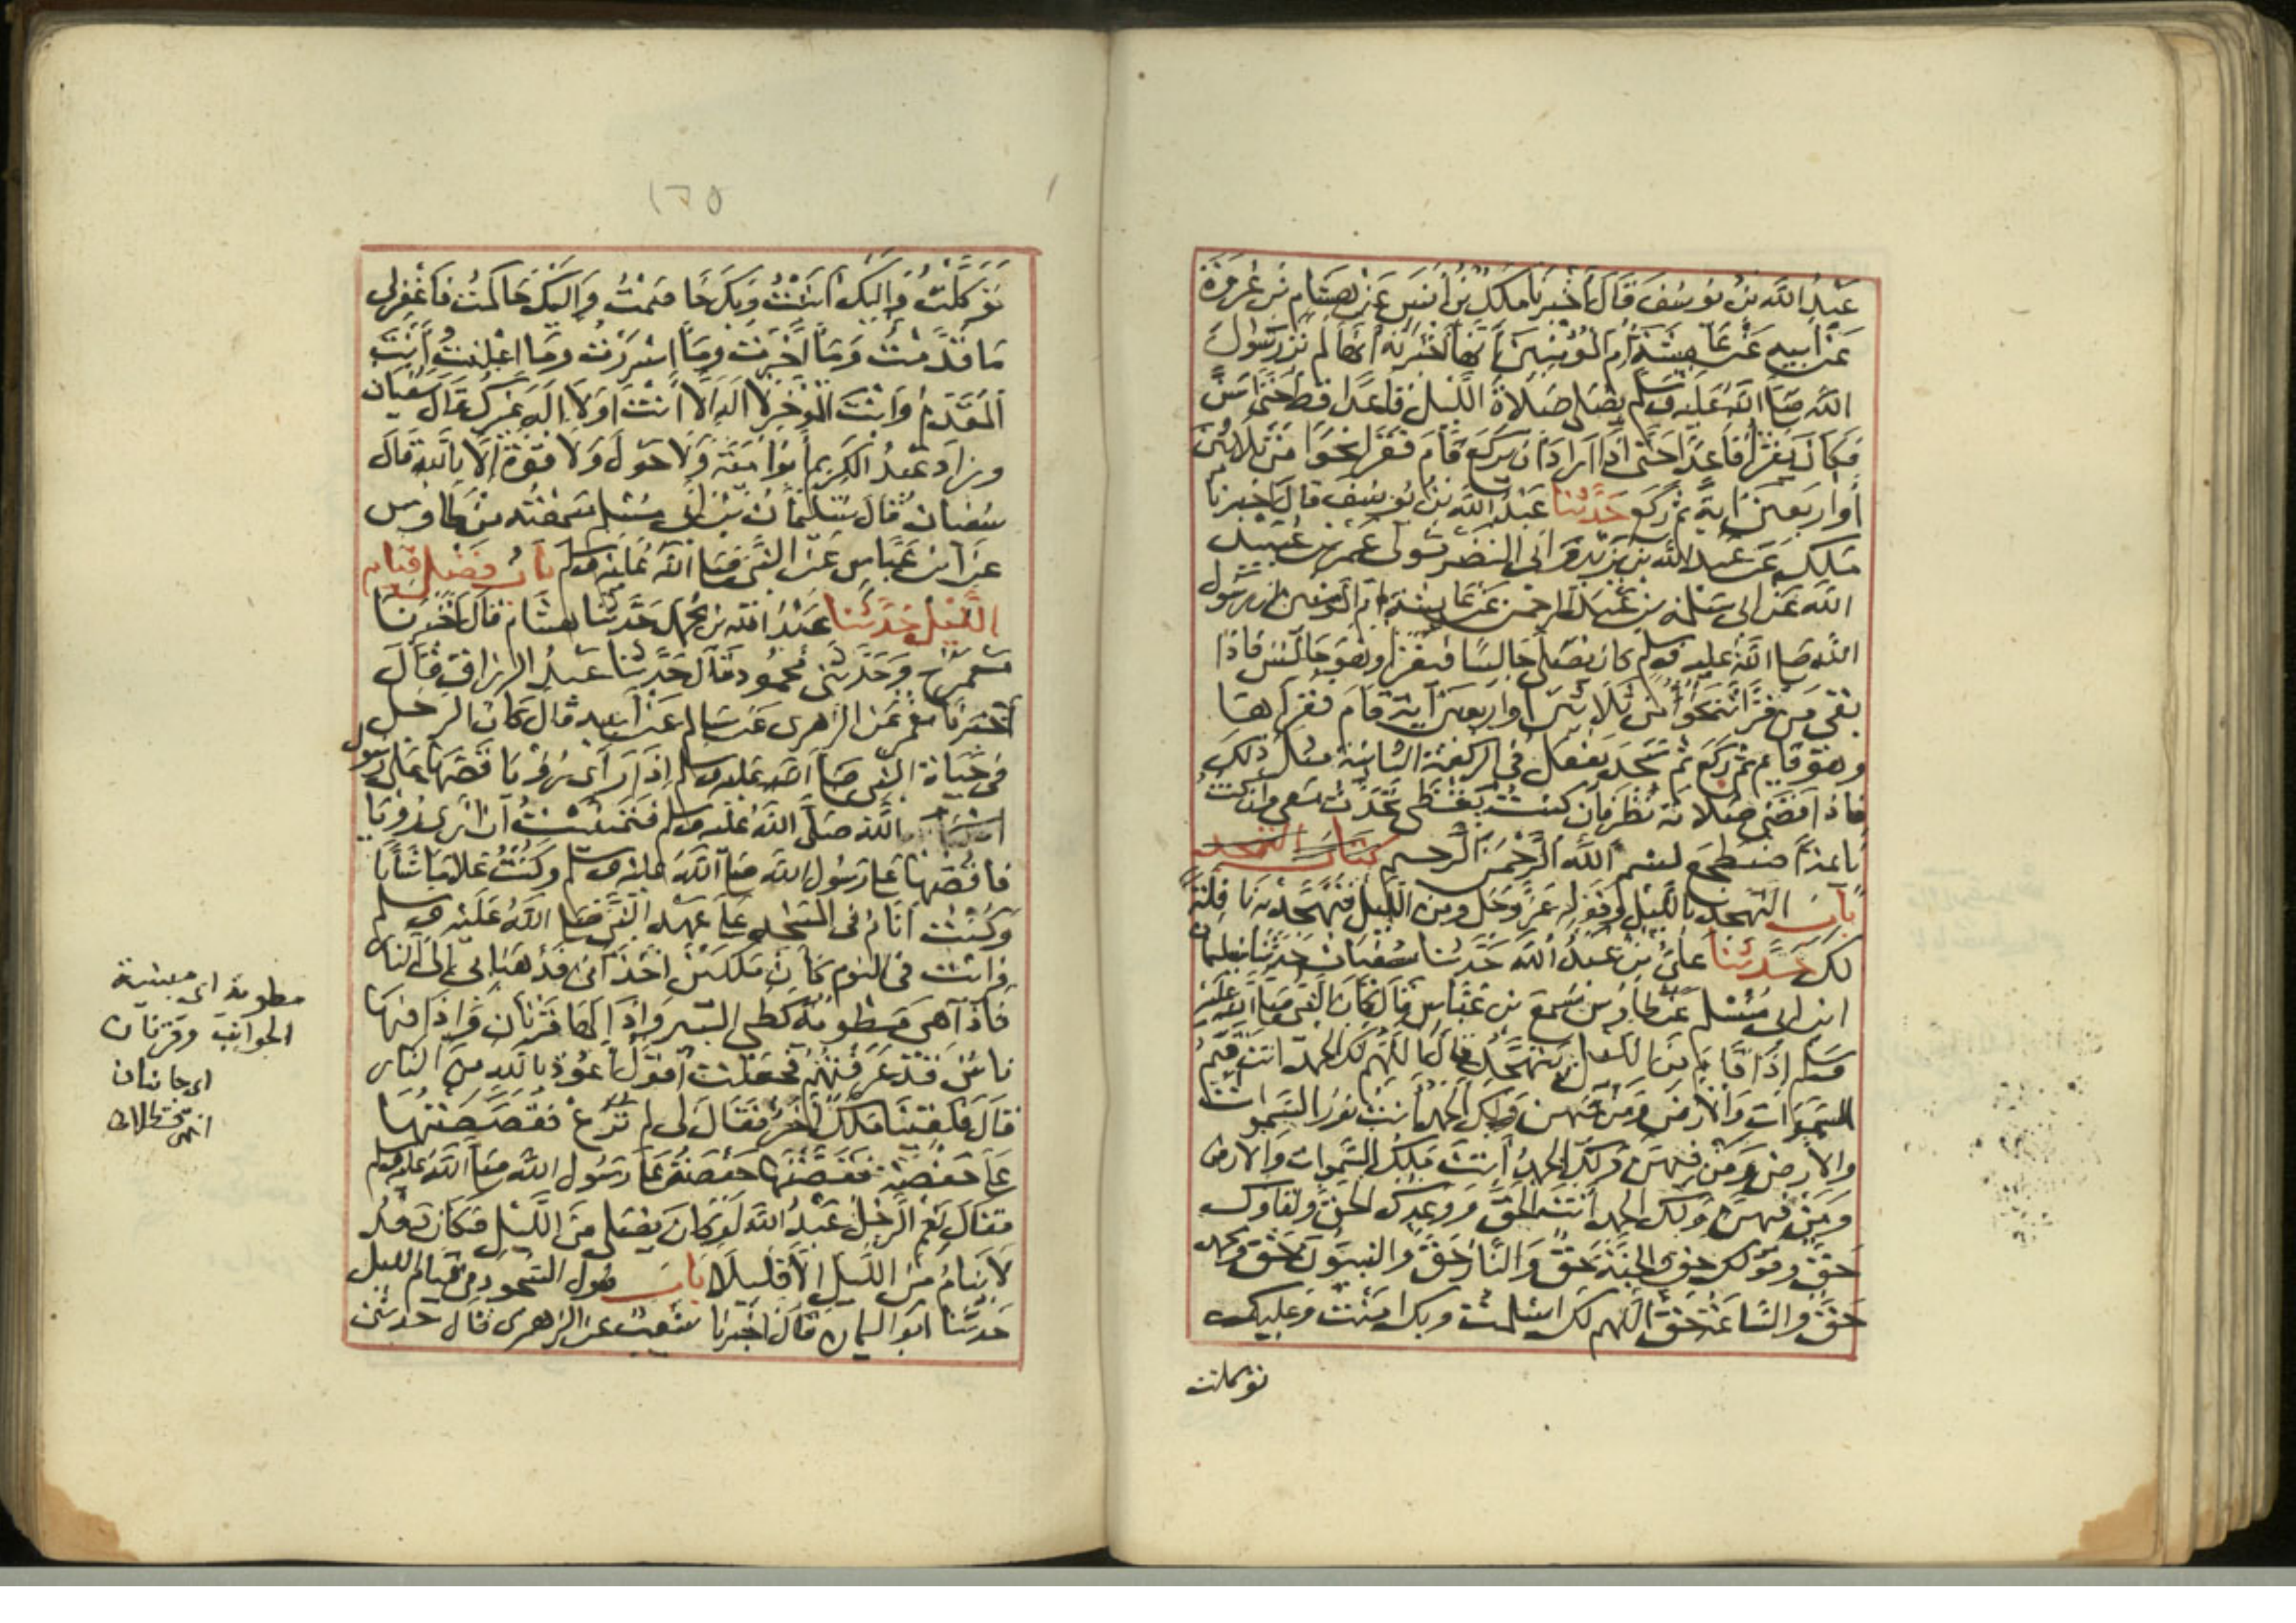 عبد الله بن يوسف قال أخبرنا ملك بن أنس عن هشام بن عروة
عن أبيه عن عايشة أم المؤمنين أنها أخبرته أنها لم تر رسول
الله صلى الله عليه وسلم يصلي صلاة الليل قاعدا قط حتى أسن
فكان يقرأ قاعدا حتى إذا أراد أن يركع قام فقرأ نحوا من ثلاثين
أو اربعين آية ثم ركع حدثنا عبد الله بن يوسف قال أخبرنا
ملك عن عبد الله بن يزيد وأبي النضر مولى عمر بن عبيد
الله عن أبي سلمة بن عبد الرحمن عن عايشة أم المؤمنين أن رسول
الله صلى الله عليه وسلم كان يصلي جالسا فيقرأ وهو جالس فاذا
بقي من قراءته نحوا من ثلاثين أو اربعين آية قام فقرأها
وهو قايم ثم ركع ثم سجد يفعل في الركعة الثانية مثل ذلك
فاذا قضى صلاته نظر فان كنت يقظى تحدث معي وان كنت
نايمة اضطجع بسم الله الرحمن الرحيم كتاب التهجد
باب التهجد بالليل وقوله عز وجل ومن الليل فتهجد به نافلة
لك حدثنا علي بن عبد الله حدثنا سفيان حدثنا سليمان
ابن أبي مسلم عن طاوس سمع بن عباس قال كان النبي صلى الله عليه
وسلم إذا قام من الليل يتهجد قال اللهم لك الحمد انت قيم
السموات والأرض ومن فيهن ولك الحمد أنت نور السموات
والارض ومن فيهن ولك الحمد أنت ملك السموات والارض
ومن فيهن ولك الحمد أنت الحق ووعدك الحق ولقاوك
حق وقولك حق والجنة حق والنار حق والنبيون حق ومحمد
حق والساعة حق اللهم لك اسلمت وبك امنت وعليك
توكلت
١٢٥
توكلت وإليك أنبت وبك خاصمت واليك حاكمت فاغفر لي
ما قدمت وما أخرت وما اسررت وما اعلنت أنت
المقدم وأنت المؤخر لا اله الا أنت أو لا اله غيرك قال سفيان
وزاد عبد الكريم أبو امية ولا حول ولا قوة الا بالله قال
سفيان قال سليمان بن أبي مسلم سمعته من طاوس
عن ابن عباس عن النبي صلى الله عليه وسلم باب فضل قيام
الليل حدثنا عبد الله بن محمد حدثنا هشام قال أخبرنا
معمر ح وحدثني محمود قال حدثنا عبد الرزاق قال
أخبرنا معمر عن الزهري عن سالم عن أبيه قال كان الرجل
في حياة النبي صلى الله عليه وسلم إذا رأى رؤيا قصها على رسول
الله صلى الله عليه وسلم فتمنيت أن أرى رؤيا
فاقصها على رسول الله صلى الله عليه وسلم وكنت غلاما شابا
وكنت أنام في المسجد على عهد النبي صلى الله عليه وسلم
فرايت في النوم كأن ملكين اخذاني فذهبا بي إلى النار
فاذا هي مطوية كطي البير وإذا لها قرنان وإذا فيها
ناس قد عرفتهم فجعلت أقول أعوذ بالله من النار
قال فلقينا ملك آخر فقال لي لم ترع فقصصتها
على حفصة فقصتها حفصة على رسول الله صلى الله عليه وسلم
فقال نعم الرجل عبد الله لو كان يصلي من الليل فكان بعد
لا ينام من الليل إلا قليلا باب طول السجود في قيام الليل
حدثنا أبو اليمان قال أخبرنا شعيب عن الزهري قال حدثني
مطوية اي مبنية
الجوانب وقرنان
اي جانبان
انتهى قسطلاني